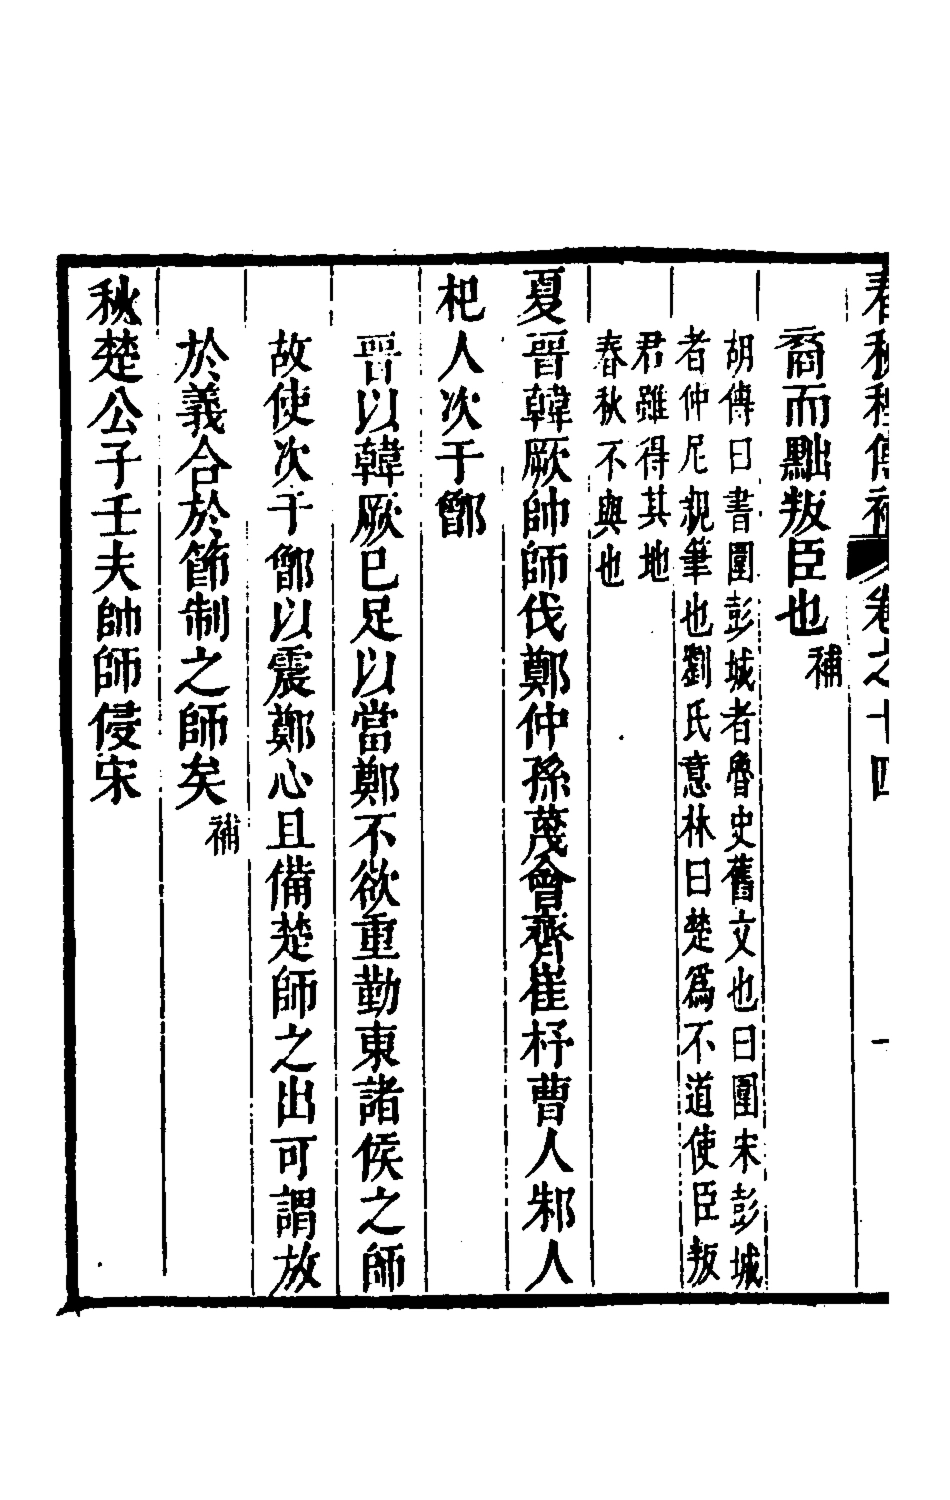 春秋程傳補 卷之十四 一
裔而黜叛臣也補
胡傳曰書圍彭城者魯史舊文也曰圍宋彭城
者仲尼親筆也劉氏意林曰楚爲不道使臣叛
君雖得其地
春秋不與也
夏晉韓厥帥師伐鄭仲孫蔑會齊崔杼曹人邾人
杞人次于鄫
晉以韓厥已足以當鄭不欲重勤東諸侯之師
故使次于鄫以震鄭心且備楚師之出可謂放
於義合於節制之師矣補
秋楚公子壬夫帥師侵宋